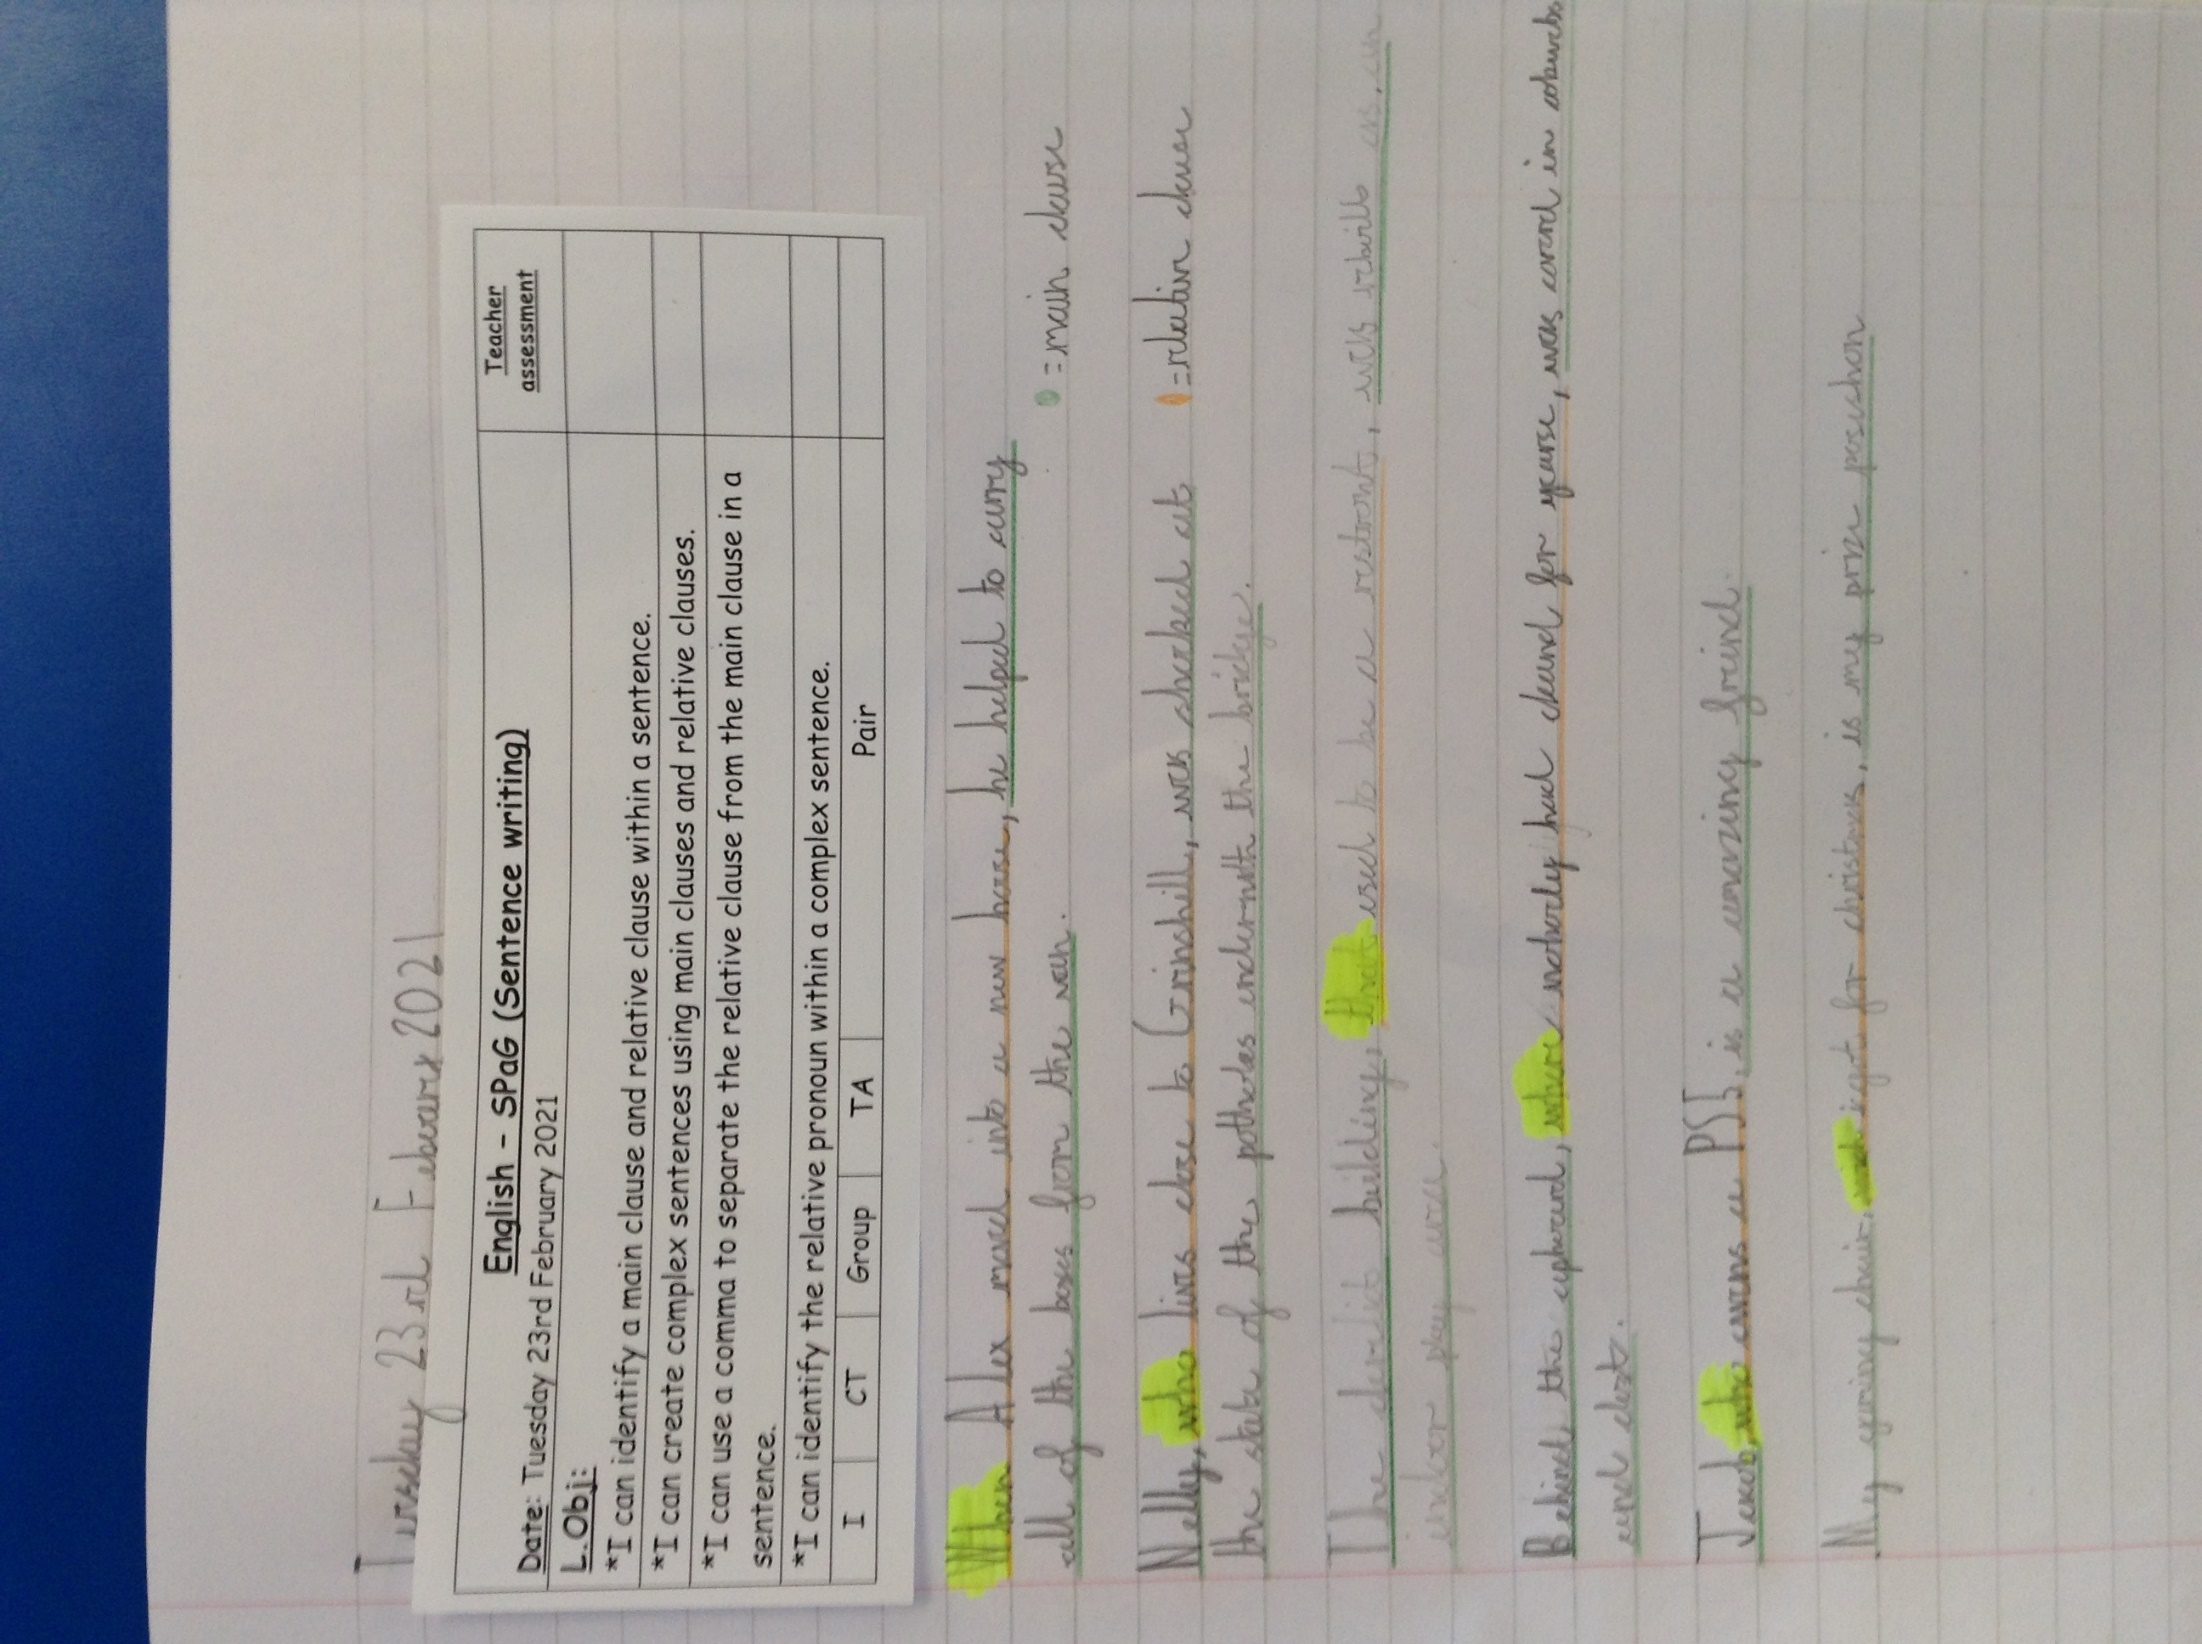 Tuesday 23rd Febuary 2021
English - SPaG (Sentence writing)
Teacher assessment
Date: Tuesday 23rd February 2021
L.Obj:
*I can identify a main clause and relative clause within a sentence.
*I can create complex sentences using main clauses and relative clauses.
*I can use a comma to separate the relative clause from the main clause in a
sentence.
*I can identify the relative pronoun within a complex sentence.
I CT Group TA Pair
When Alex moved into a new house, he helped to carry
all of the boxes from the van.
= main clause
Nelly, who lives close to Grinshill, was shocked at
= relative clause
the state of the potholes underneath the bridge.
The derelict building, that used to be a restaront, was rebuilt as an
indoor play area.
Behind the cupboard, where nobody had cleand for years, was coverd in cobwebs
and dust.
Jacob, who owns a PS5, is a amazing freind.
My gaming chair, I got for christmas, is my prize poseshon